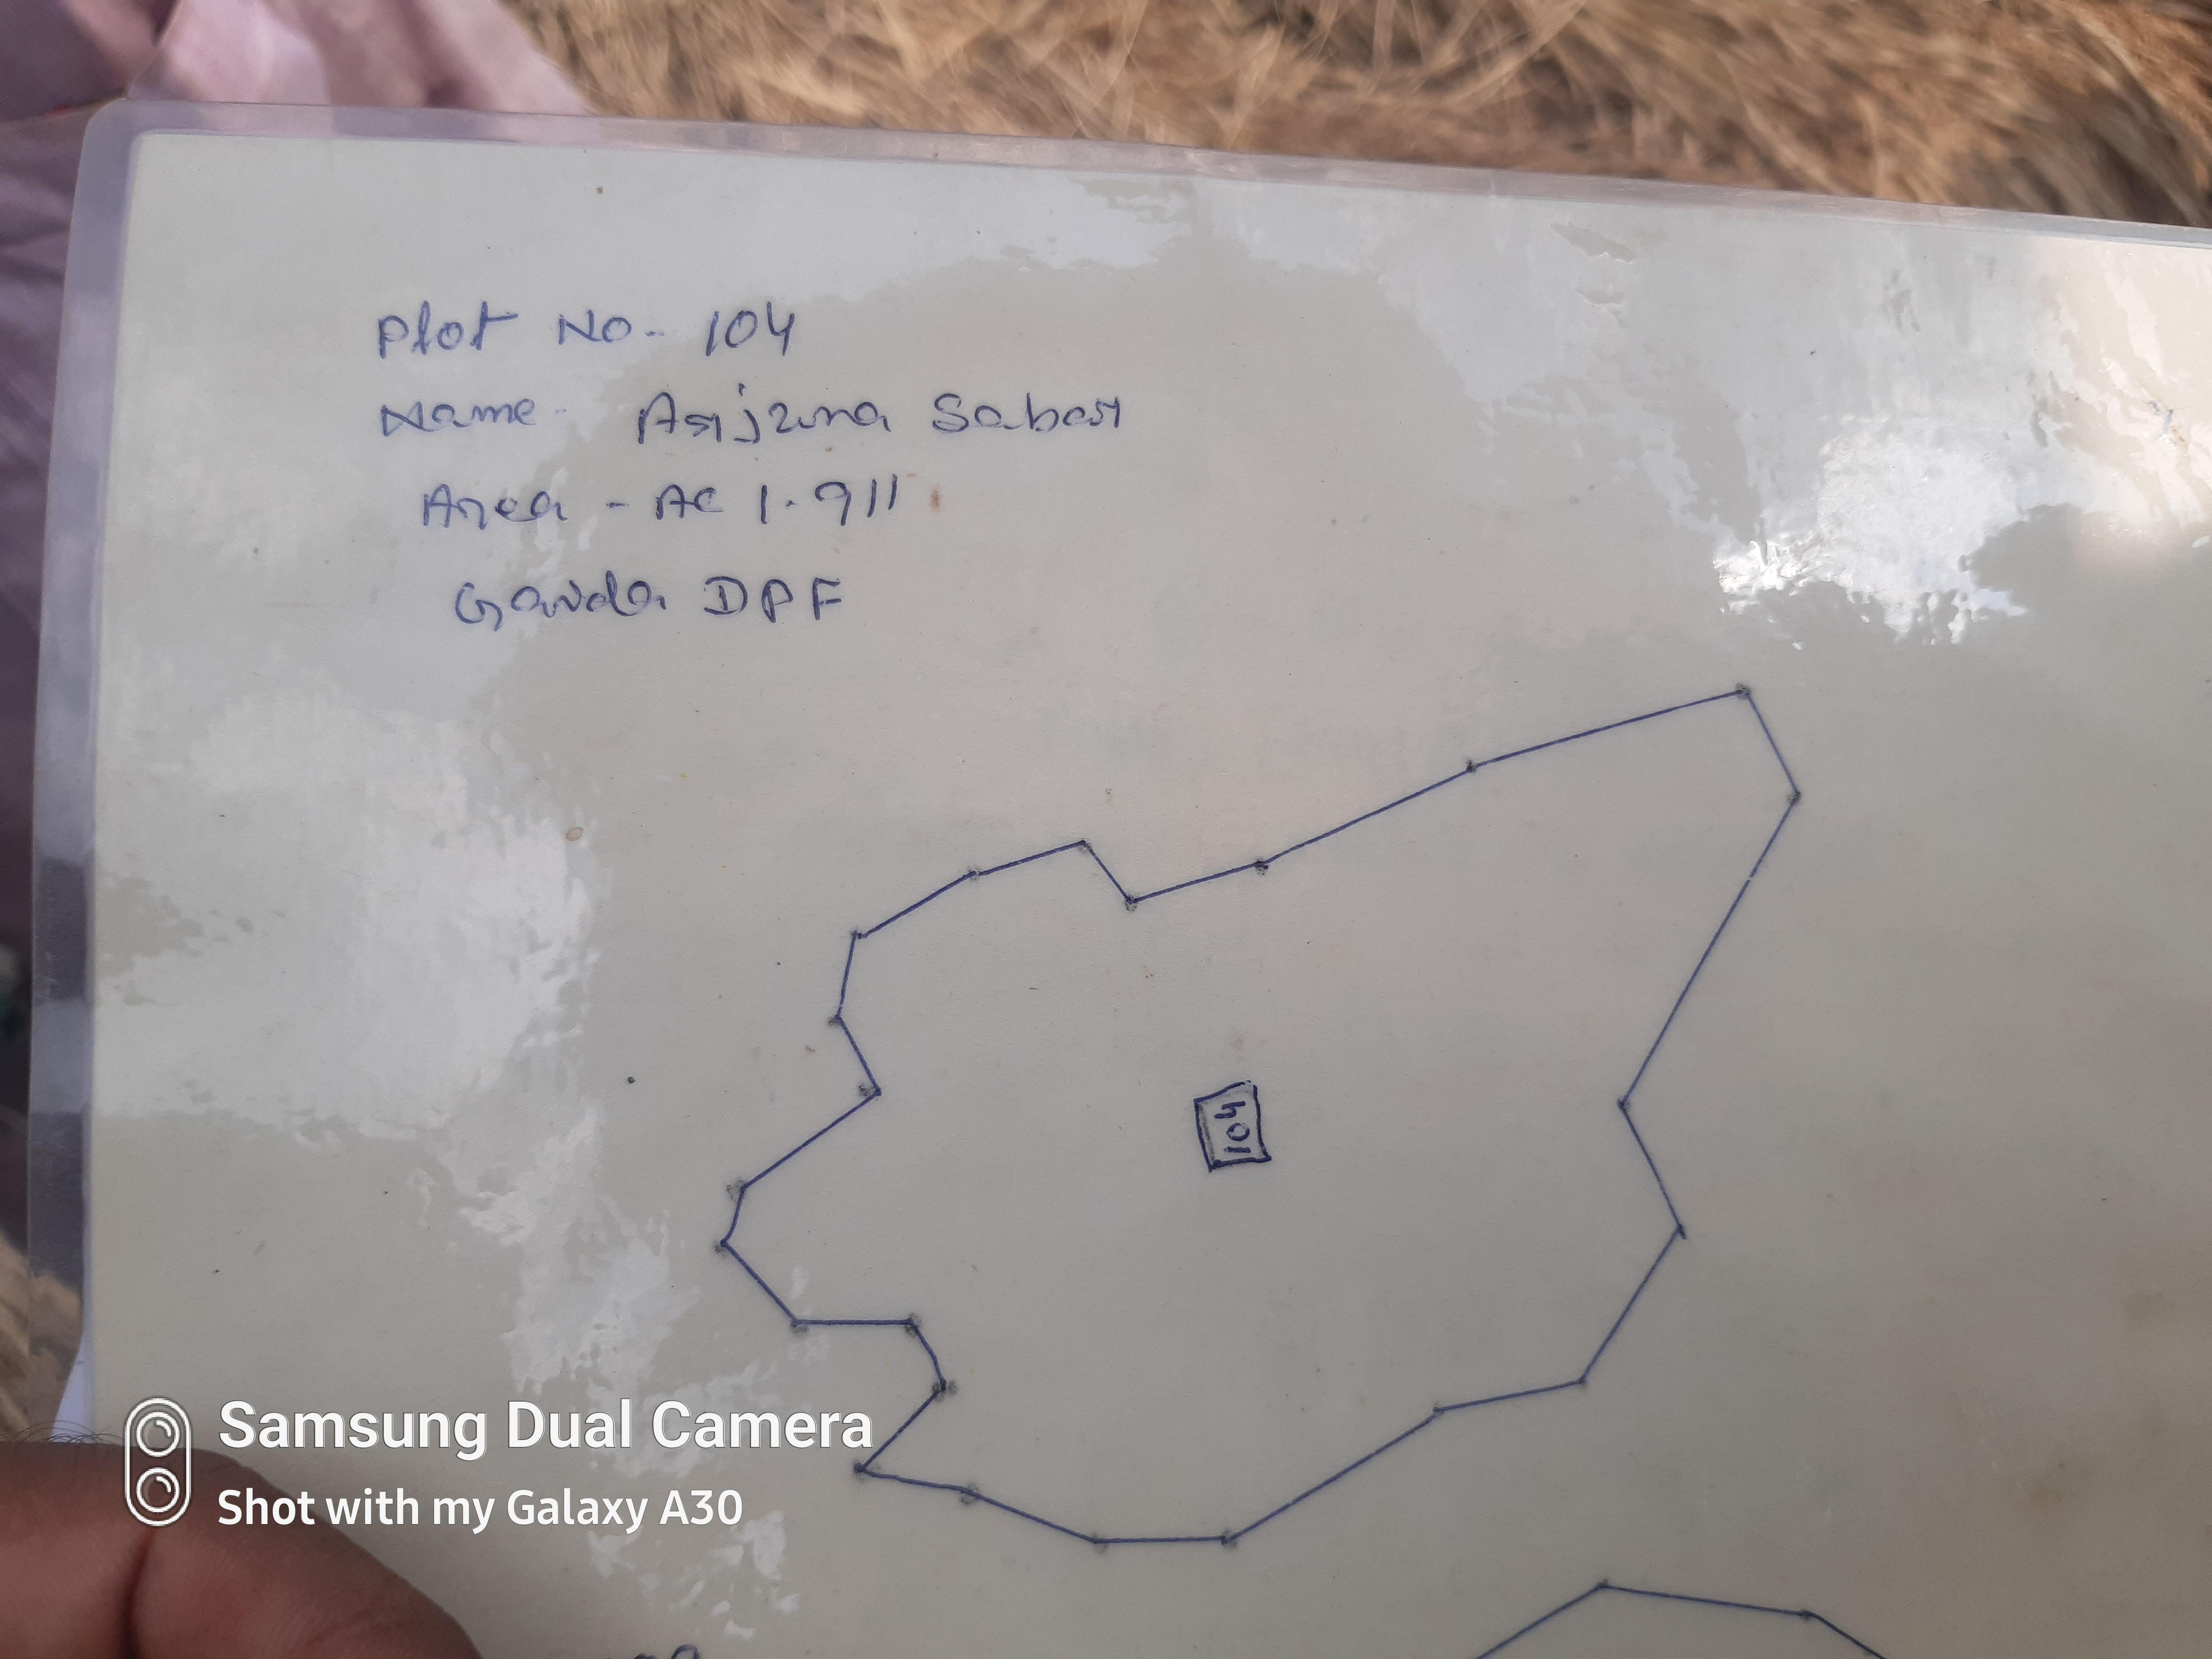 Plot No- 104
Name- Arjuna Sabar
Area - AC 1.911
Gavda DPF
104
Samsung Dual Camera
Shot with my Galaxy A30